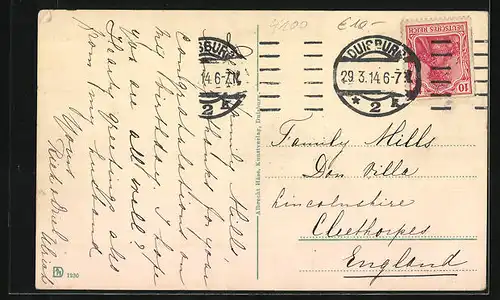 Dear Family Mills,
Many thanks for your
congratulations on
my Birthday. I hope
you are all well?
Hearty greetings also
from my husband
Yours
£10-
DUISBURG
29.3.14 6-7N
* 2 k
DUISBURG
.14 6-7N
2 k
DEUTSCHES REICH
10
Family Mills
Don Villa
Lincolnshire
Cleethorpes
England
Albrecht Häse, Kunstverlag, Duisburg
1930